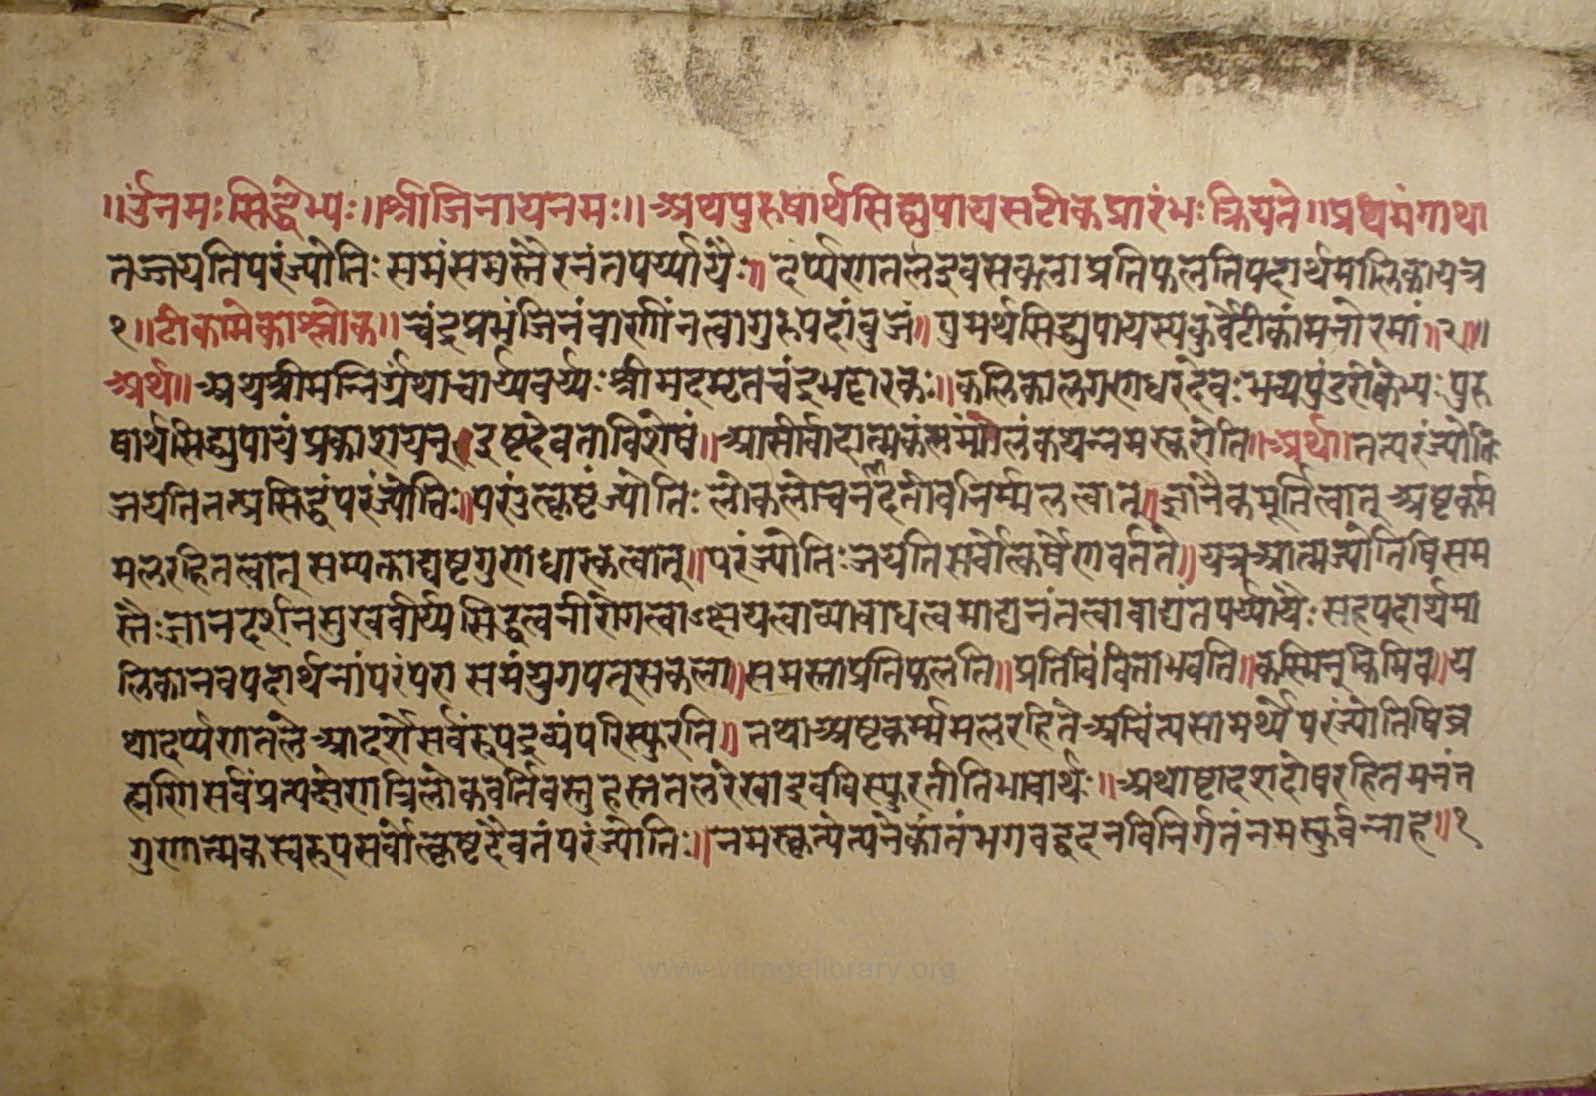 ॥र्उनमःसिद्धेभ्यः॥श्रीजिनायनमः॥अथपुरुषार्थसिद्ध्युपायसटीकप्रारंभःक्रियते॥प्रथमंगाथा
तज्जयतिपरंज्योतिःसमंसमस्तैरनंतपर्य्यायैः॥दर्प्पणतलइवसकलाप्रतिफलतिपदार्थमालिकायत्र
१॥टीकामेकाश्लोक॥चंद्रप्रभंजिनंवाणींनत्वागुरुपदांबुजं॥पुमर्थसिद्ध्युपायस्यकुर्वेटीकांमनोरमां॥२॥॥
अर्थ॥अथश्रीमन्निर्ग्रंथाचार्य्यवर्य्यःश्रीमदमृतचंद्रभट्टारकः॥कलिकालगणधरदेवःभव्यपुंडरीकेभ्यःपुरु
षार्थसिद्ध्युपायंप्रकाशयन्॥इष्टदेवताविशेषं॥आसीर्वादात्मकंमंगलंकथयन्नमस्करोति॥अर्था॥तत्परंज्योति
जयतितत्प्रसिद्धंपरंज्योतिः॥परंउत्कृष्टंज्योतिःलोकलोचनंददतीवनिर्म्मलत्वात्॥ज्ञानैकमूर्तित्वात्अष्टकर्म
मलरहितत्वात्सम्यक्ताद्यष्टगुणधारकत्वात्॥परंज्योतिःजयतिसर्वोत्कर्षेणवर्तते॥यत्रआत्मज्योतिषिसम
स्तैःज्ञानदर्शनसुखवीर्य्यसिद्धत्वनीरोगत्वाऽक्षयत्वाव्याबाधत्वमाद्यनंतत्वावाद्यंतपर्य्यायैःसहपदार्थमा
लिकानवपदार्थनांपरंपरासमंयुगपत्सकला॥समस्ताप्रतिफलति॥प्रतिबिंबिताभवति॥कस्मिन्किमिव॥य
थादर्प्पणतलेआदर्शेसर्वंरूपद्रव्यंपरिस्फुरति॥तथाअष्टकर्म्ममलरहितेअचिंत्यसामर्थ्येपरंज्योतिषिब्र
ह्मणिसर्वंप्रत्यक्षेणत्रिलोकवर्तिवस्तुहस्ततलरेखाइवविस्फुरतीतिभावार्थः॥अथाष्टादशदोषरहितमनंत
गुणात्मकस्वरूपसर्वोत्कृष्टदैवतंपरंज्योतिः॥नमस्कृत्येत्यनेकांतंभगवद्वदनविनिर्गतंनमस्कुर्वन्नाह॥१
www.vrindelibrary.org